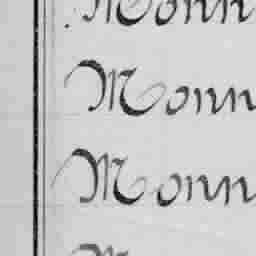 Monn
Monn
Monn
M